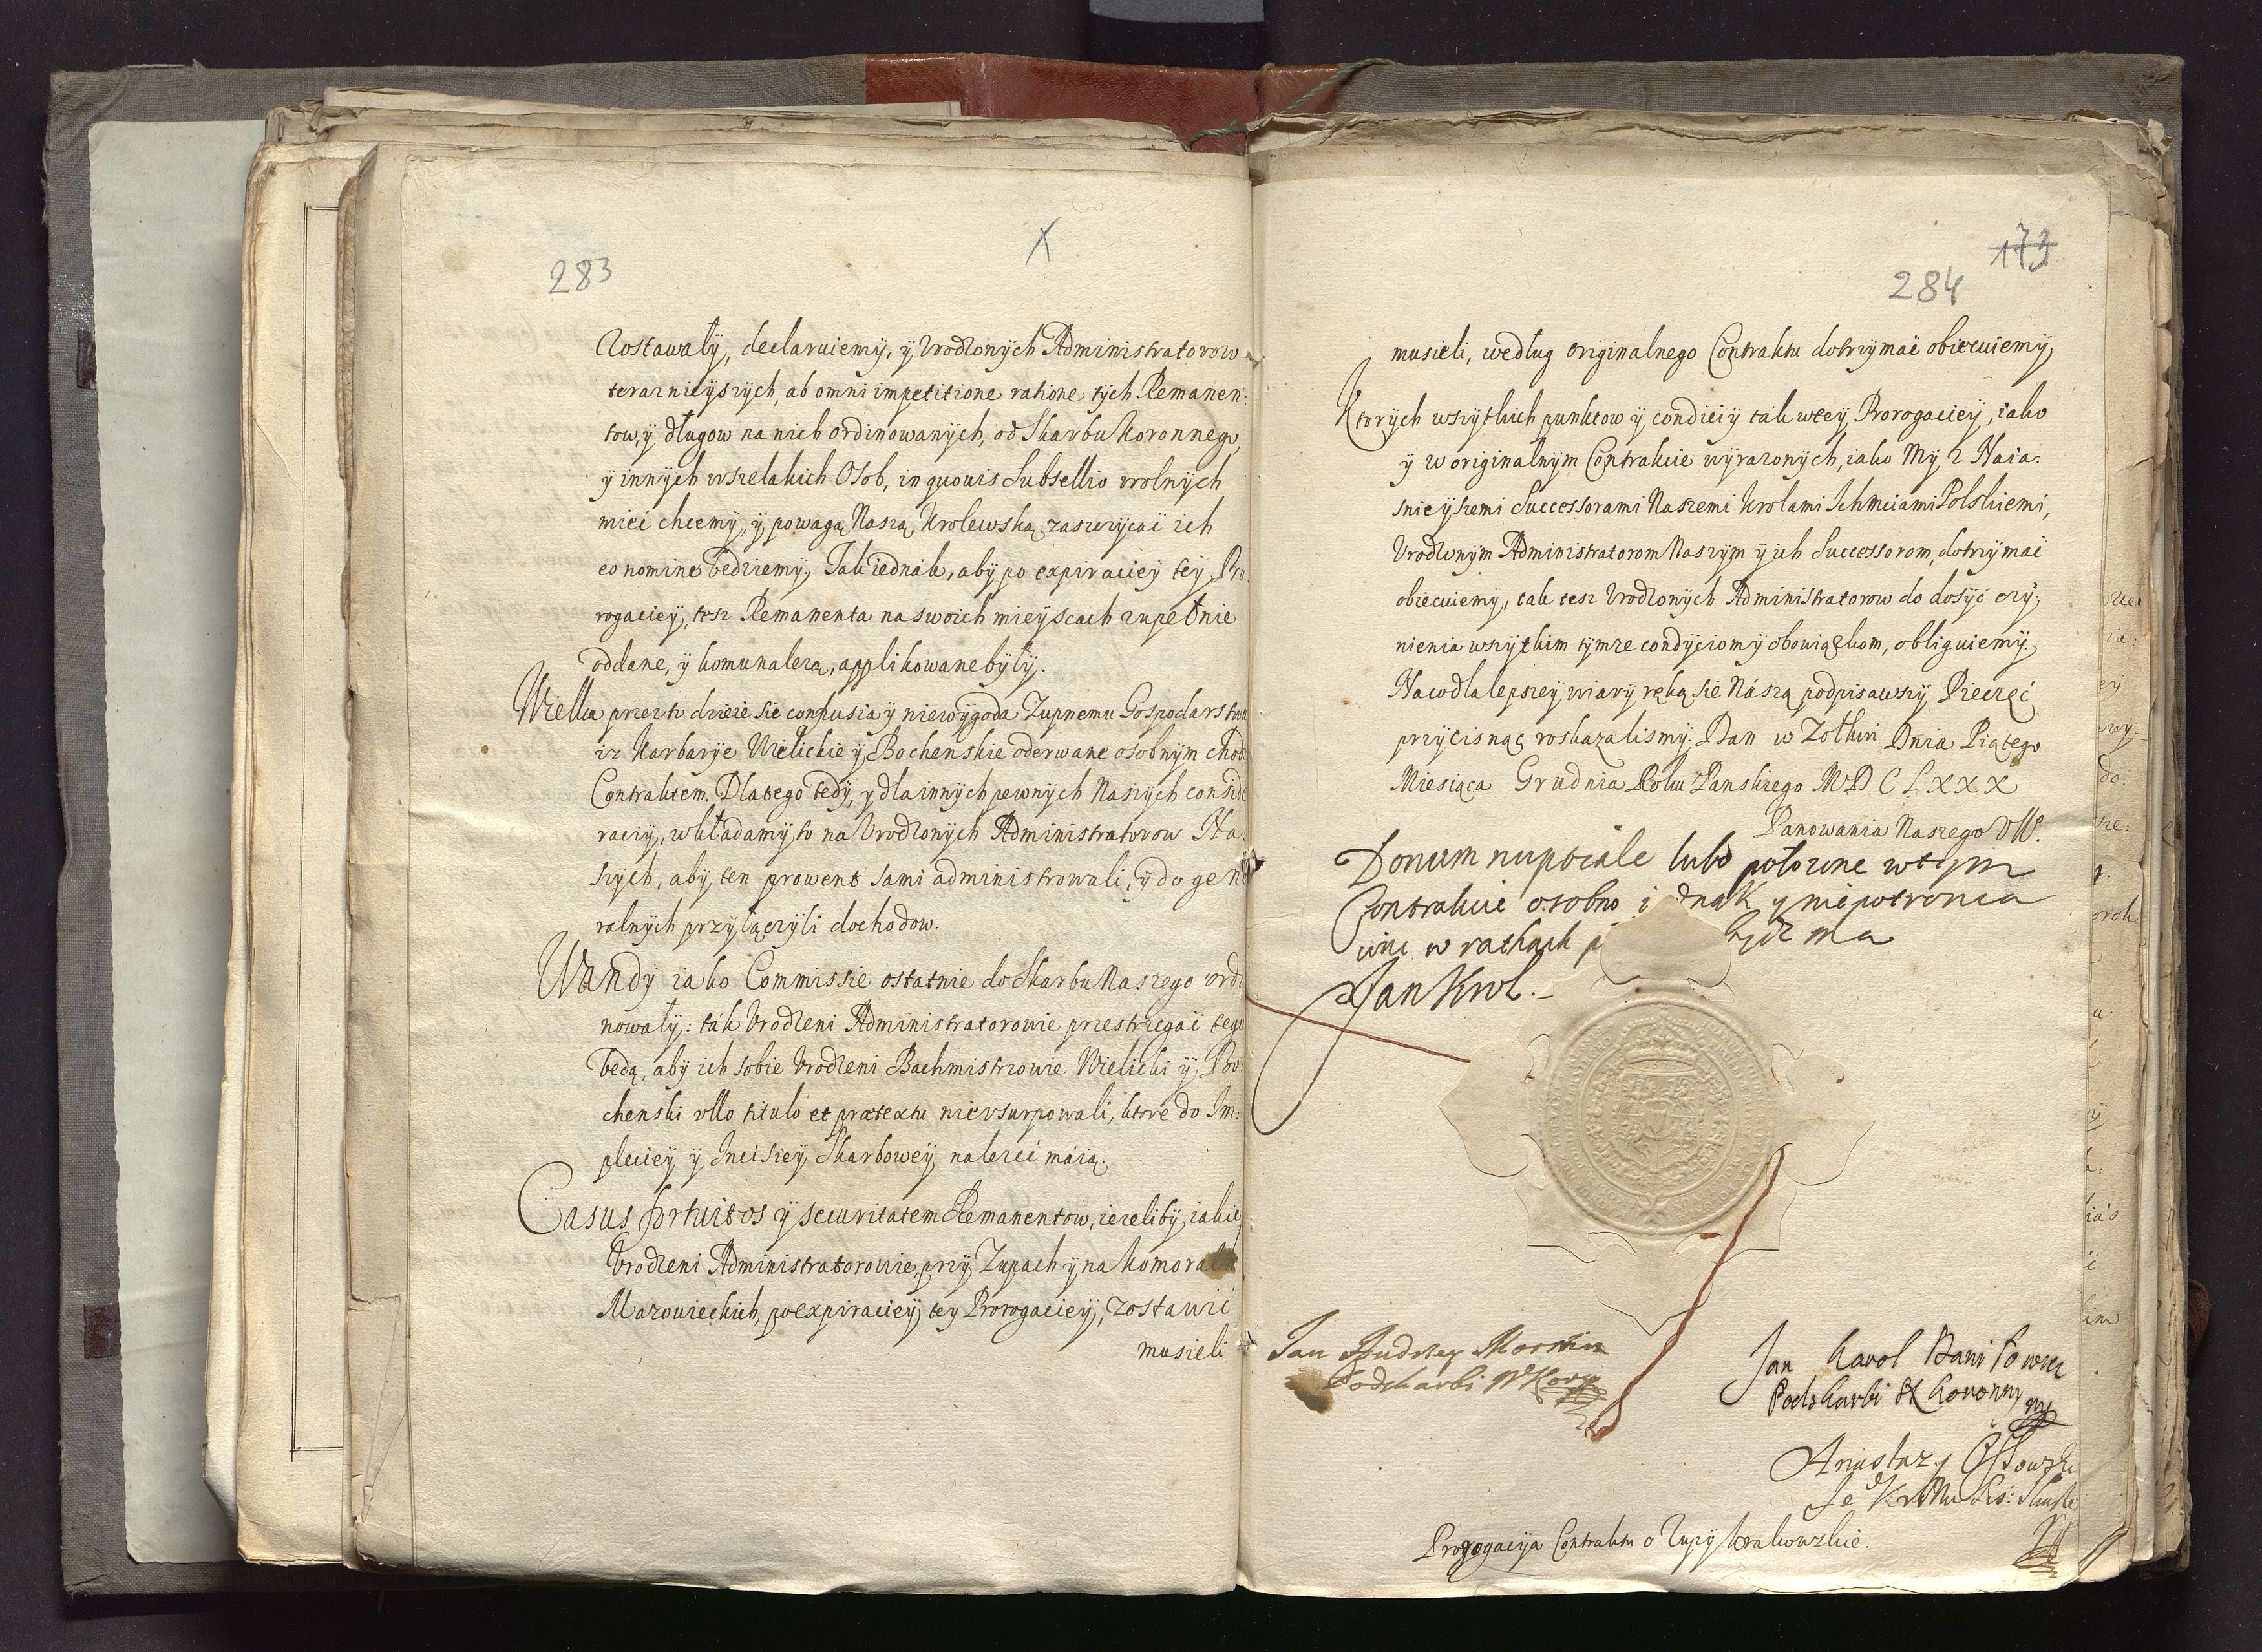 283
X
Zostawały, declaruiemy, y Vrodzonych Administratorow
teraznieyszych, ab omni impetitione ratione tych Remanen:
tow, y długow na nich ordinowanych, od Skarbu Koronnego,
y innych wszelakich Osob, in quovis Subsellio wolnych
mieć chcemy, y powagą Naszą Krolewską zaszczycać ich
eo nomine bedziemy, Tak iednák, aby po expiraciey tey Pro:
rogaciey, tesz Remanenta na swoich mieyscach zupełnie
oddane, y komu nalezą, applikowane były.
Wielka przez to dzieie sie confusia y niewygoda Zupnemu Gospodarstwu
iz Karbarye Wielickie y Bochenskie oderwane osobnym chodzą
Contraktem. Dlatego tedy, y dla innych pewnych Naszych conside
raciy, wkładamy to na Vrodzonych Administratorow Na:
szych, aby ten prowent sami administrowali, y do gene
ralnych przyłączyli dochodow.
Wandy iako Commissie ostatnie do Skarbu Naszego ordi
nowały: ták Vrodzeni Administratorowie przestrzegać tego
bedą, aby ich sobie Vrodzeni Bachmistrzowie Wielicki y Bo:
chenski ullo titulo et praetextu nie vsurpowali, ktore do Im:
pleciey y Incisiey Skarbowey nalezeć máią.
Casus fortuitos y securitatem Remanentow, iezeliby iakie
Vrodzeni Administratorowie, przy Zupach y na Komorach
Mazowieckich, po expiraciey tey Prorogaciey, zostawić
musieli
173
284
musieli, według originalnego Contraktu dotrzymać obiecuiemy,
Ktorych wszytkich punktow y condiciy tak w tey Prorogaciey, iako
y w originalnym Contrakcie wyrazonych, iako My z Naia:
snieyszemi Successorami Naszemi Krolami Ichmciami Polskiemi,
Vrodzonym Administratorom Naszym y ich Successorom, dotrzymać
obiecuiemy, tak tesz Vrodzonych Administratorow do dosyć czy:
nienia wszytkim tymze condyciom y obowiązkom, obliguiemy.
Na co dla lepszey wiary ręką sie Nászą podpisawszy Pieczęć
przycisnąć roskazalismy. Dan w Zołkwi Dnia Piątego
Miesiąca Grudnia Roku Panskiego MDCLXXX
Panowania Naszego VII°.
Donum nuptiale lubo połozone w tym
Contrakcie osobno iednak y niepotronca
iąc w rathach bydz ma
Jan Krol.
Jan Andrzey Morstin
Podskarbi W Koro
Jan Karol Daniłowicz
Podskarbi N Koronny
mp
Anastazy
Je K
Prorogacyja Contraktu o Zupy Krakowskie.